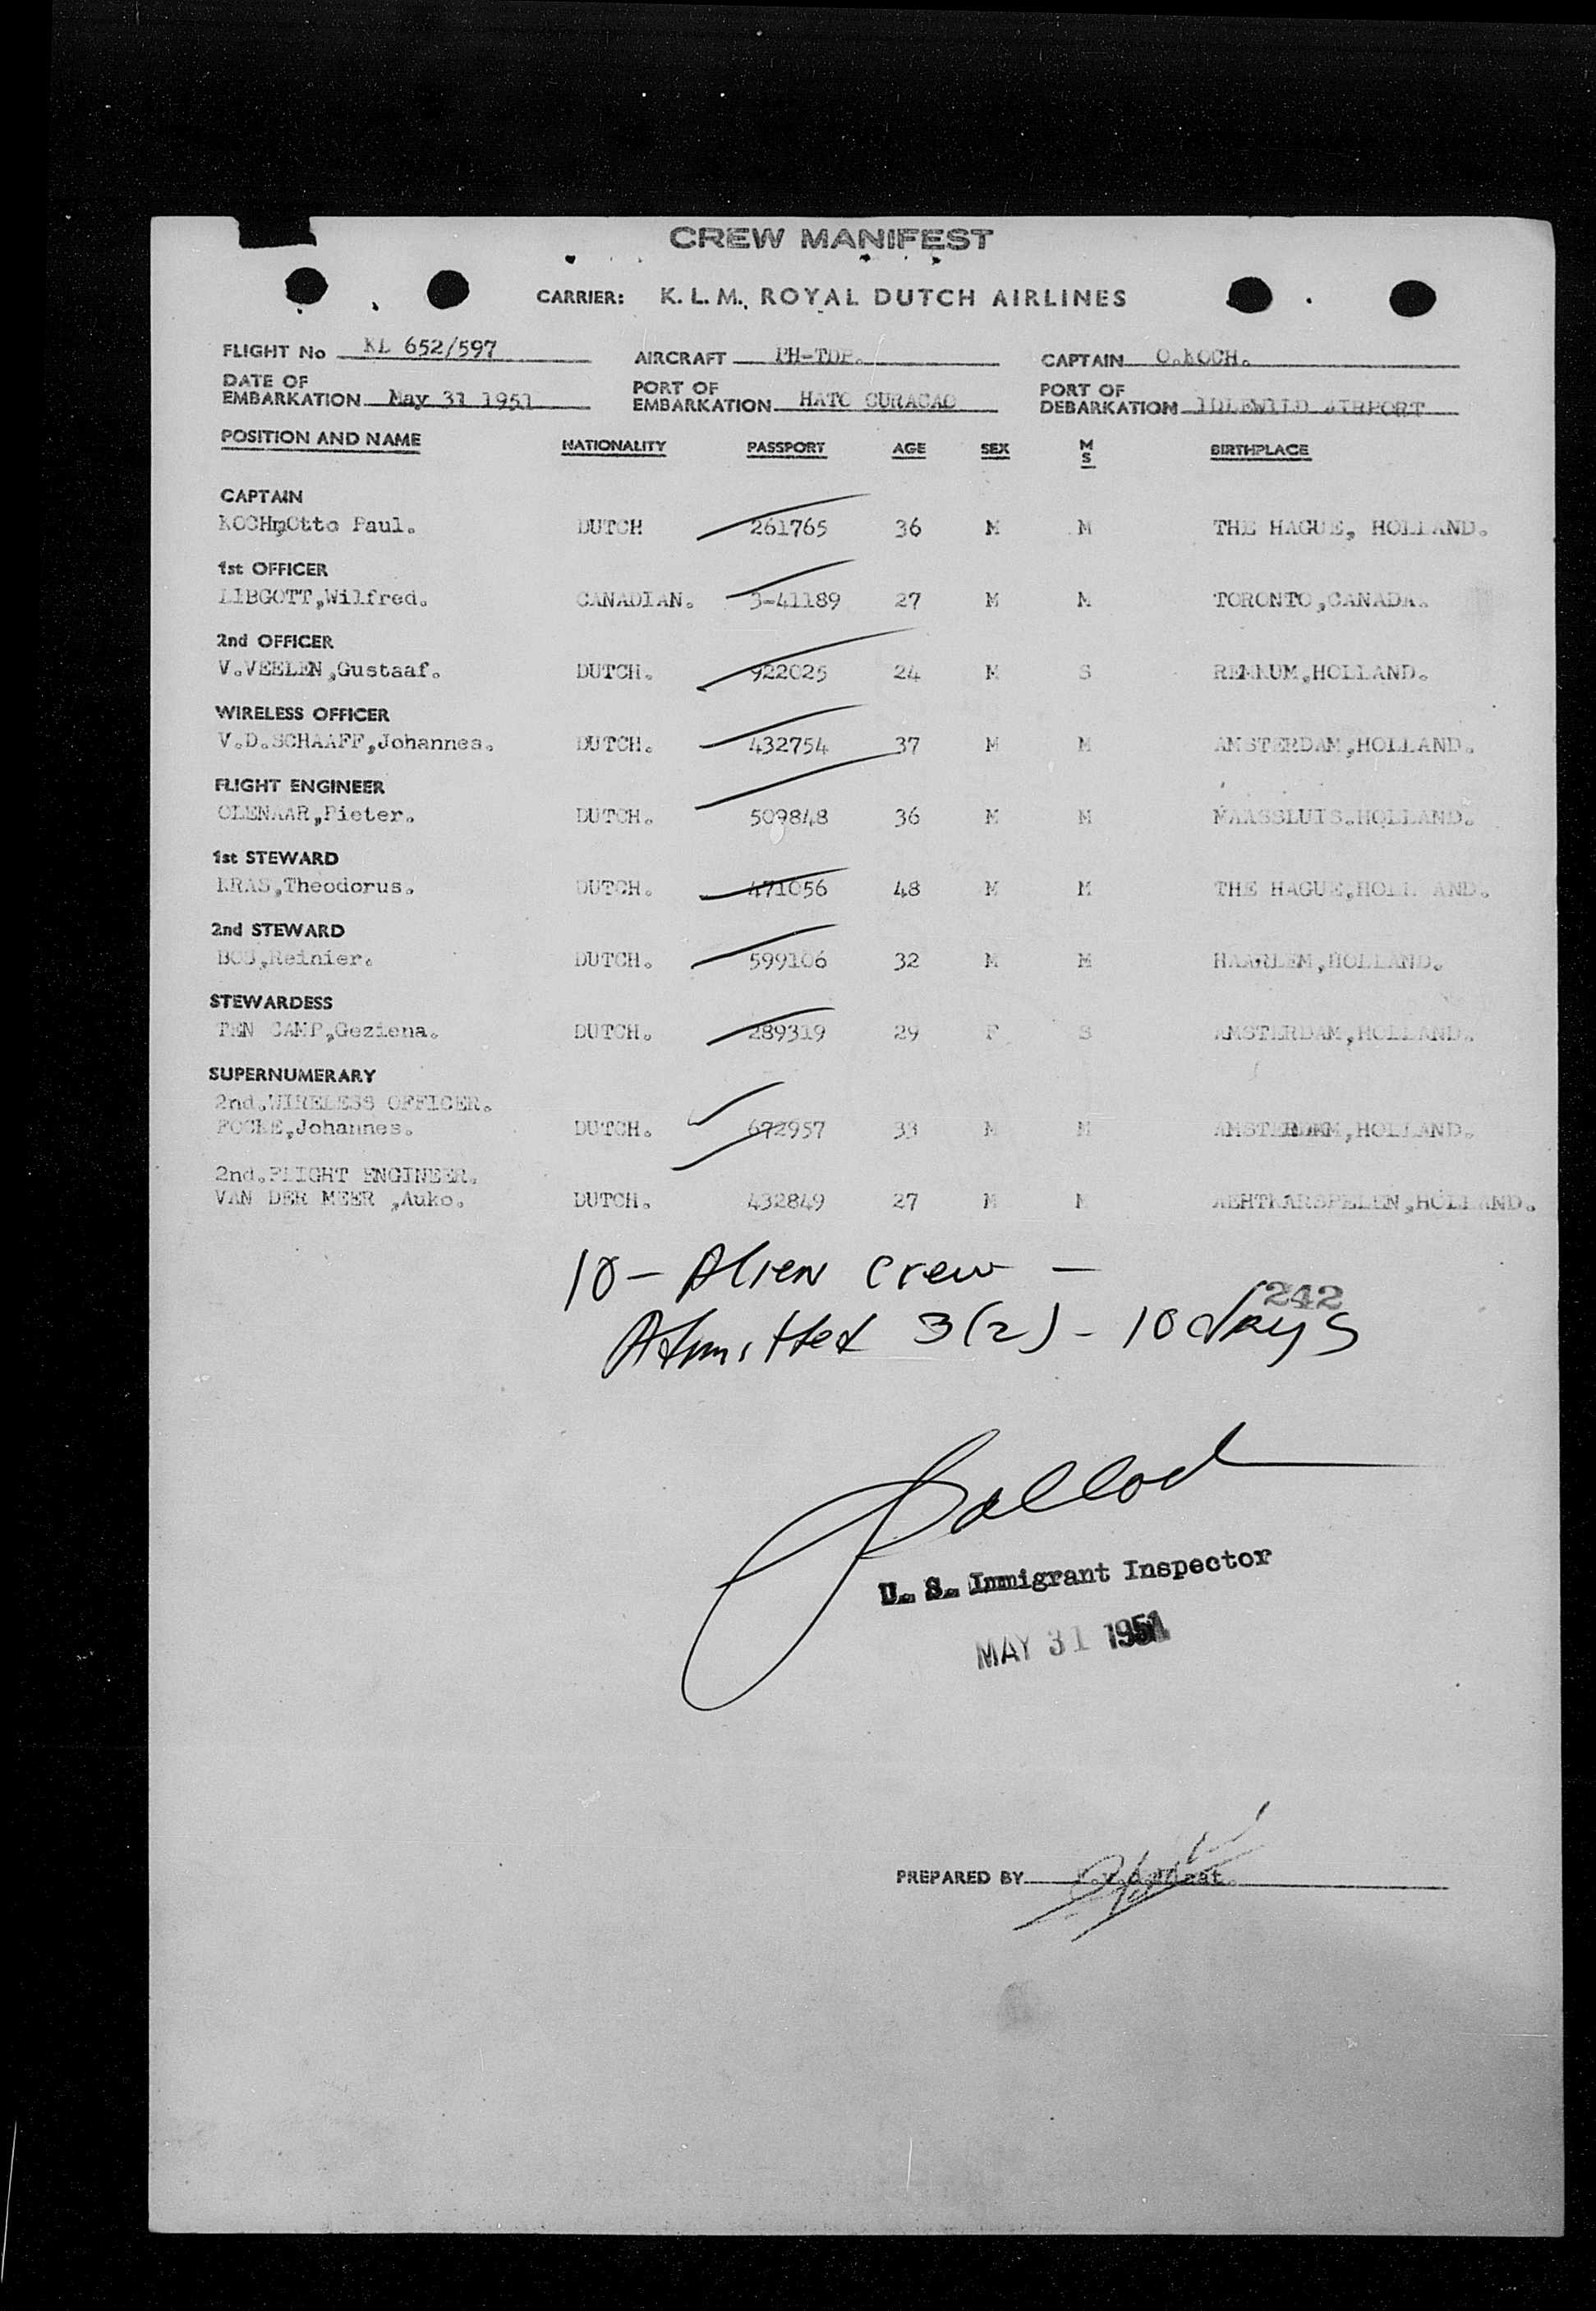 CREW MANIFEST
CARRIER: K.L.M., ROYAL DUTCH AIRLINES
FLIGHT No KL 652/597 AIRCRAFT PH-TDP. CAPTAIN O.KOCH.
DATE OF EMBARKATION May 31 1951 PORT OF EMBARKATION HATO CURACAO PORT OF DEBARKATION IDLEWILD AIRPORT
POSITION AND NAME NATIONALITY PASSPORT AGE SEX M S BIRTHPLACE
CAPTAIN
KOCH,Otto Paul. DUTCH 261765 36 M M THE HAGUE, HOLLAND.
1st OFFICER
LIBGOTT,Wilfred. CANADIAN. 3-41189 27 M M TORONTO,CANADA.
2nd OFFICER
V.VEELEN,Gustaaf. DUTCH. 922025 24 M S RENKUM,HOLLAND.
WIRELESS OFFICER
V.D.SCHAAFF,Johannes. DUTCH. 432754 37 M M AMSTERDAM,HOLLAND.
FLIGHT ENGINEER
OLENAAR,Pieter. DUTCH. 509848 36 M M MAASSLUIS.HOLLAND.
1st STEWARD
KRAS,Theodorus. DUTCH. 471056 48 M M THE HAGUE,HOLLAND.
2nd STEWARD
BOS,Reinier. DUTCH. 599106 32 M M HAARLEM,HOLLAND.
STEWARDESS
TEN CAMP,Geziena. DUTCH. 289319 29 F S AMSTERDAM,HOLLAND.
SUPERNUMERARY
2nd.WIRELESS OFFICER.
FOCKE,Johannes. DUTCH. 672957 33 M M AMSTERDAM,HOLLAND.
2nd.FLIGHT ENGINEER.
VAN DER MEER ,Auko. DUTCH. 432849 27 M M AEHTKARSPELEN,HOLLAND.
10 - Alien crew -
242
Admitted 3(2) - 10 days
U. S. Immigrant Inspector
MAY 31 1951
PREPARED BY